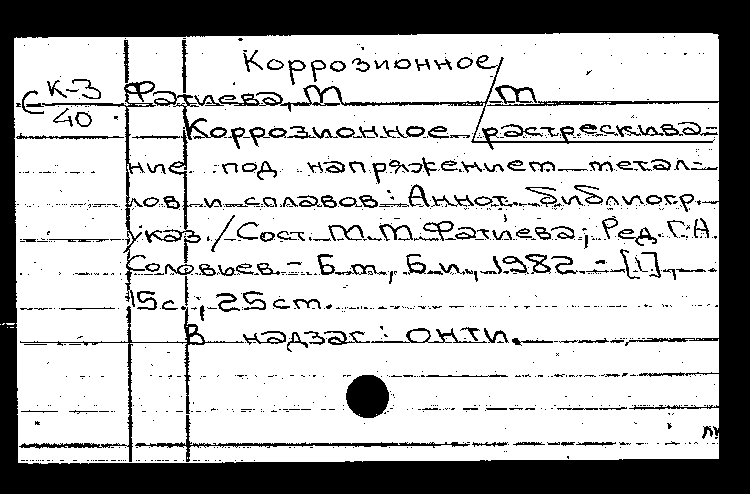 Коррозионное
С К-3/40 Фатиева, М М
Коррозионное растрескива=
ние под напряжением метал-
лов и сплавов: Аннот. библиогр.
указ. / Сост. М.М.Фатиева; Ред. Г.А
Соловьев - Б.м, Б.и, 1982 - [1],
15с.; 25см.
В надзаг: ОНТИ.